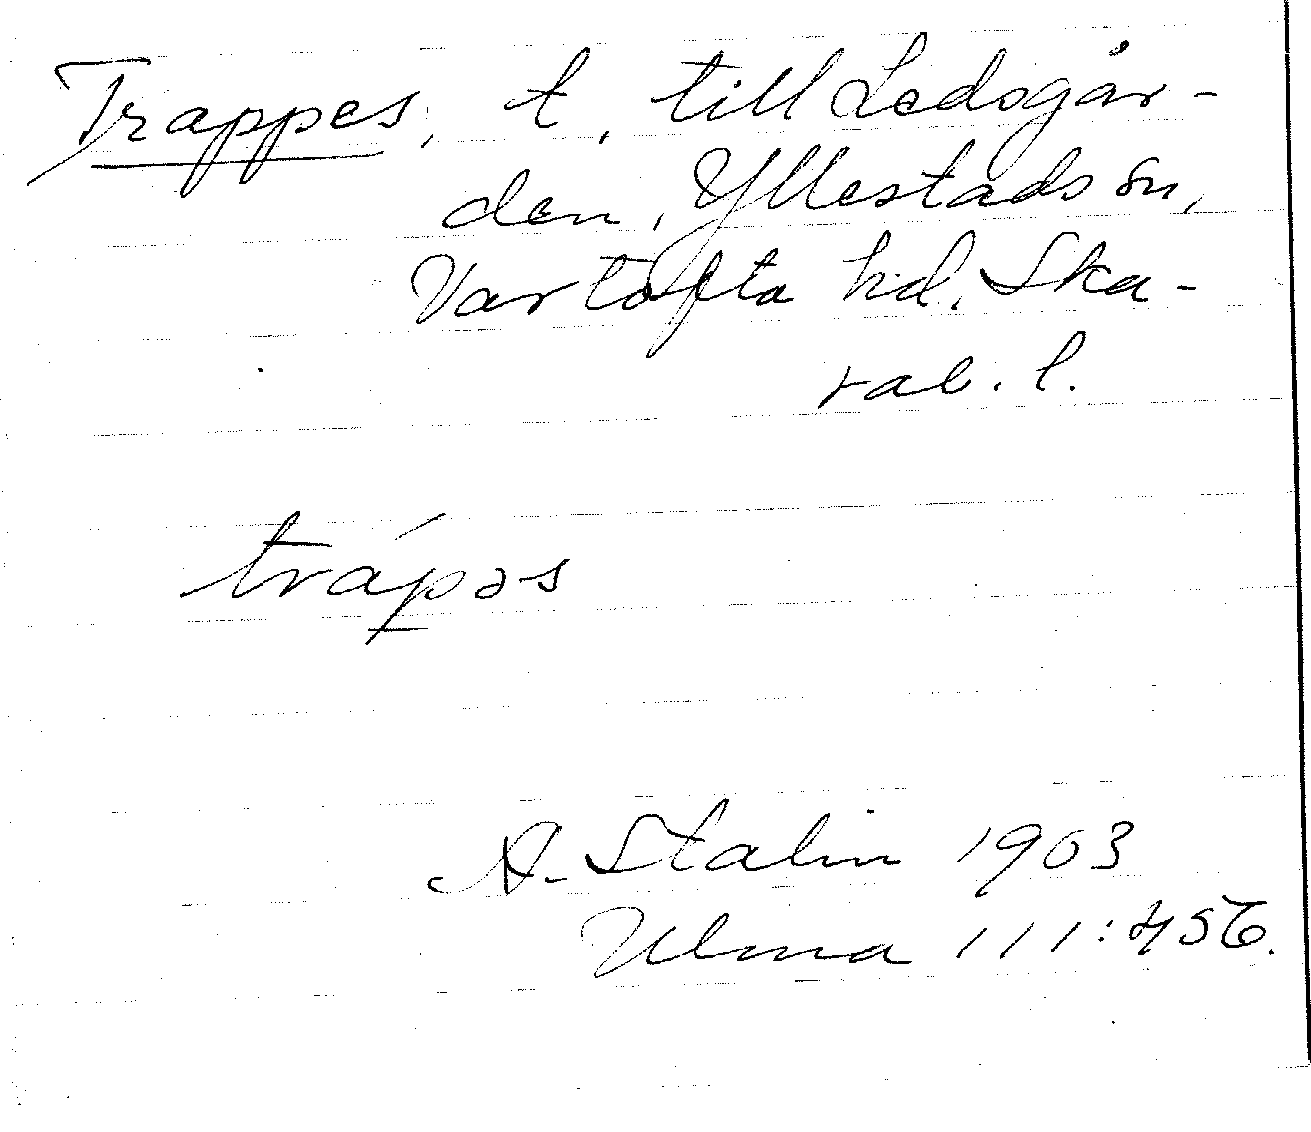 Trappes, t, till Ledsgår-
den, Yllestads sn,
Vartofta hd. Ska-
rab. l.
trápəs
A. Stalin 1903
Ulma 111:456.